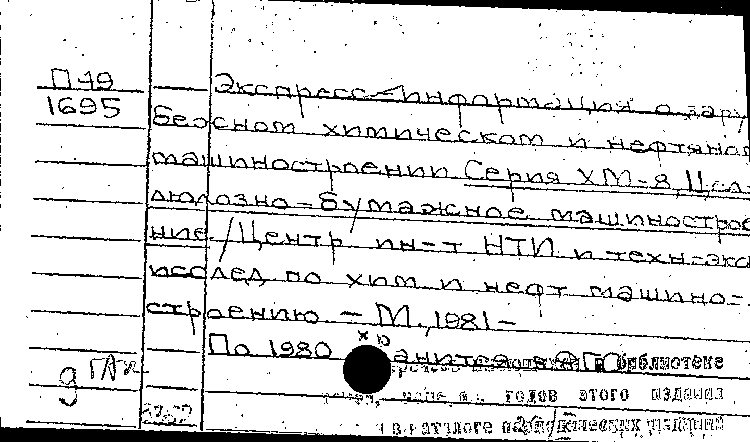 П 49
1695
Экспресс-информация о зару
бежном химическом и нефтяном
машиностроении Серия ХМ-8, Цел
люлозно-бумажное машинострое
ние / Центр ин-т НТИ и техн-эко
исслед по хим и нефт машино-
строению - М., 1981-
По 1980 хранится в библиотеке
годов этого издания
в каталоге периодических изданий